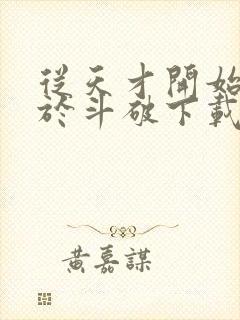 從天才開始
於斗破下載
黃嘉謀